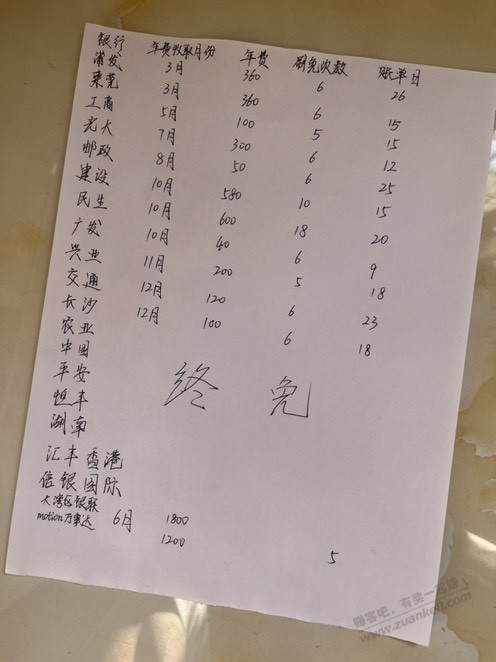 银行 年费收取月份 年费 刷免次数 账单日
浦发 3月 360 6 26
东莞 3月 360 6 15
工商 5月 100 5 15
光大 7月 300 6 12
邮政 8月 50 6 25
建设 10月 580 10 15
民生 10月 600 18 20
广发 10月 40 6 9
兴业 11月 200 5 18
交通 12月 120 6 23
长沙 12月 100 6 18
农业
中国
平安 终免
恒丰
湖南
汇丰香港
信银国际
大湾区银联 6月 1800
motion万事达 1200 5
赚客吧,有奖一起赚!
www.zuanke8.com